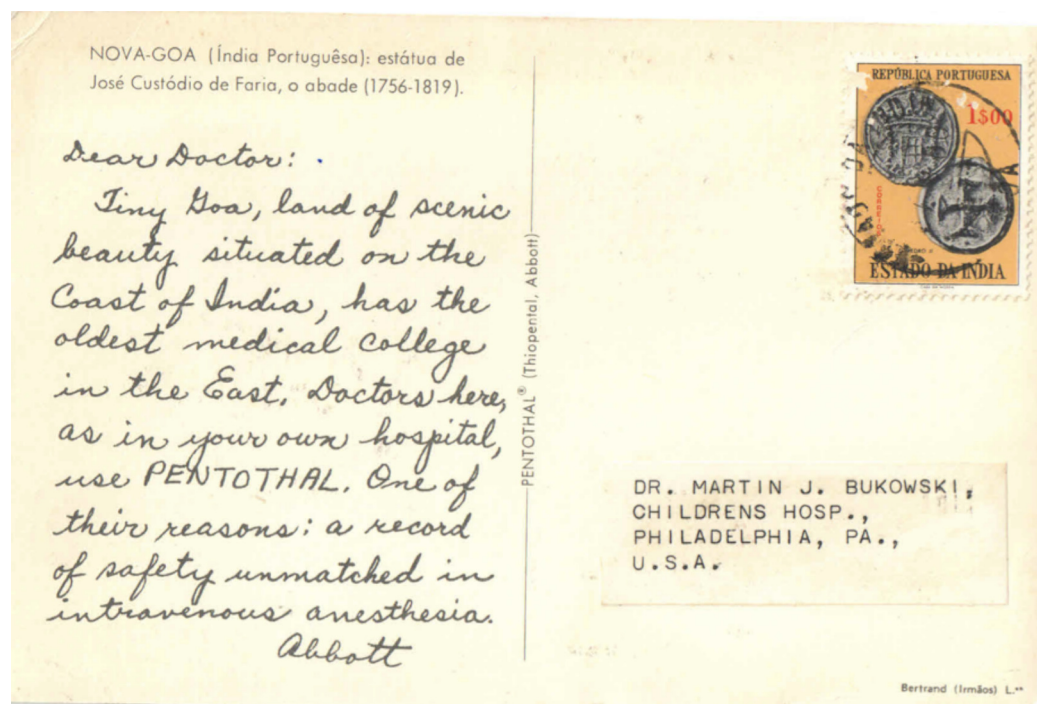 NOVA-GOA (Índia Portuguêsa): estátua de
José Custódio de Faria, o abade (1756-1819).
Dear Doctor:
Tiny Goa, land of scenic
beauty situated on the
Coast of India, has the
oldest medical college
in the East. Doctors here,
as in your own hospital,
use PENTOTHAL. One of
their reasons: a record
of safety unmatched in
intravenous anesthesia.
Abbott
PENTOTHAL® (Thiopental, Abbott)
REPÚBLICA PORTUGUESA
1$00
CORREIOS
ESTADO DA INDIA
DR. MARTIN J. BUKOWSKI,
CHILDRENS HOSP.,
PHILADELPHIA, PA.,
U.S.A.
Bertrand (Irmãos) L.ᵈᵃ